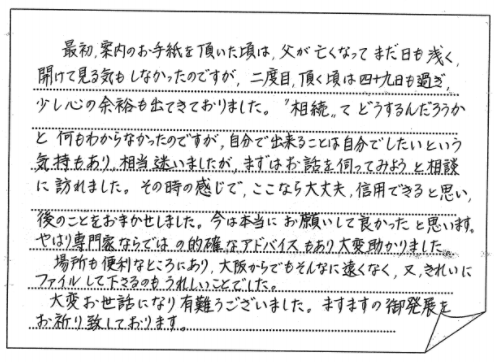 最初、案内のお手紙を頂いた頃は、父が亡くなってまだ日も浅く、
開けて見る気もしなかったのですが、二度目、頂く頃は四十九日も過ぎ、
少し心の余裕も出てきておりました。〝相続〟てどうするんだろうか
と何もわからなかったのですが、自分で出来ることは自分でしたいという
気持もあり、相当迷いましたが、まずはお話を伺ってみようと相談
に訪れました。その時の感じで、ここなら大丈夫、信用できると思い、
後のことをおまかせしました。今は本当にお願いして良かったと思います。
やはり専門家ならではの的確なアドバイスもあり大変助かりました。
場所も便利なところにあり、大阪からでもそんなに遠くなく、又、きれいに
ファイルして下さるのもうれしいことでした。
大変お世話になり有難うございました。ますますの御発展を
お祈り致しております。